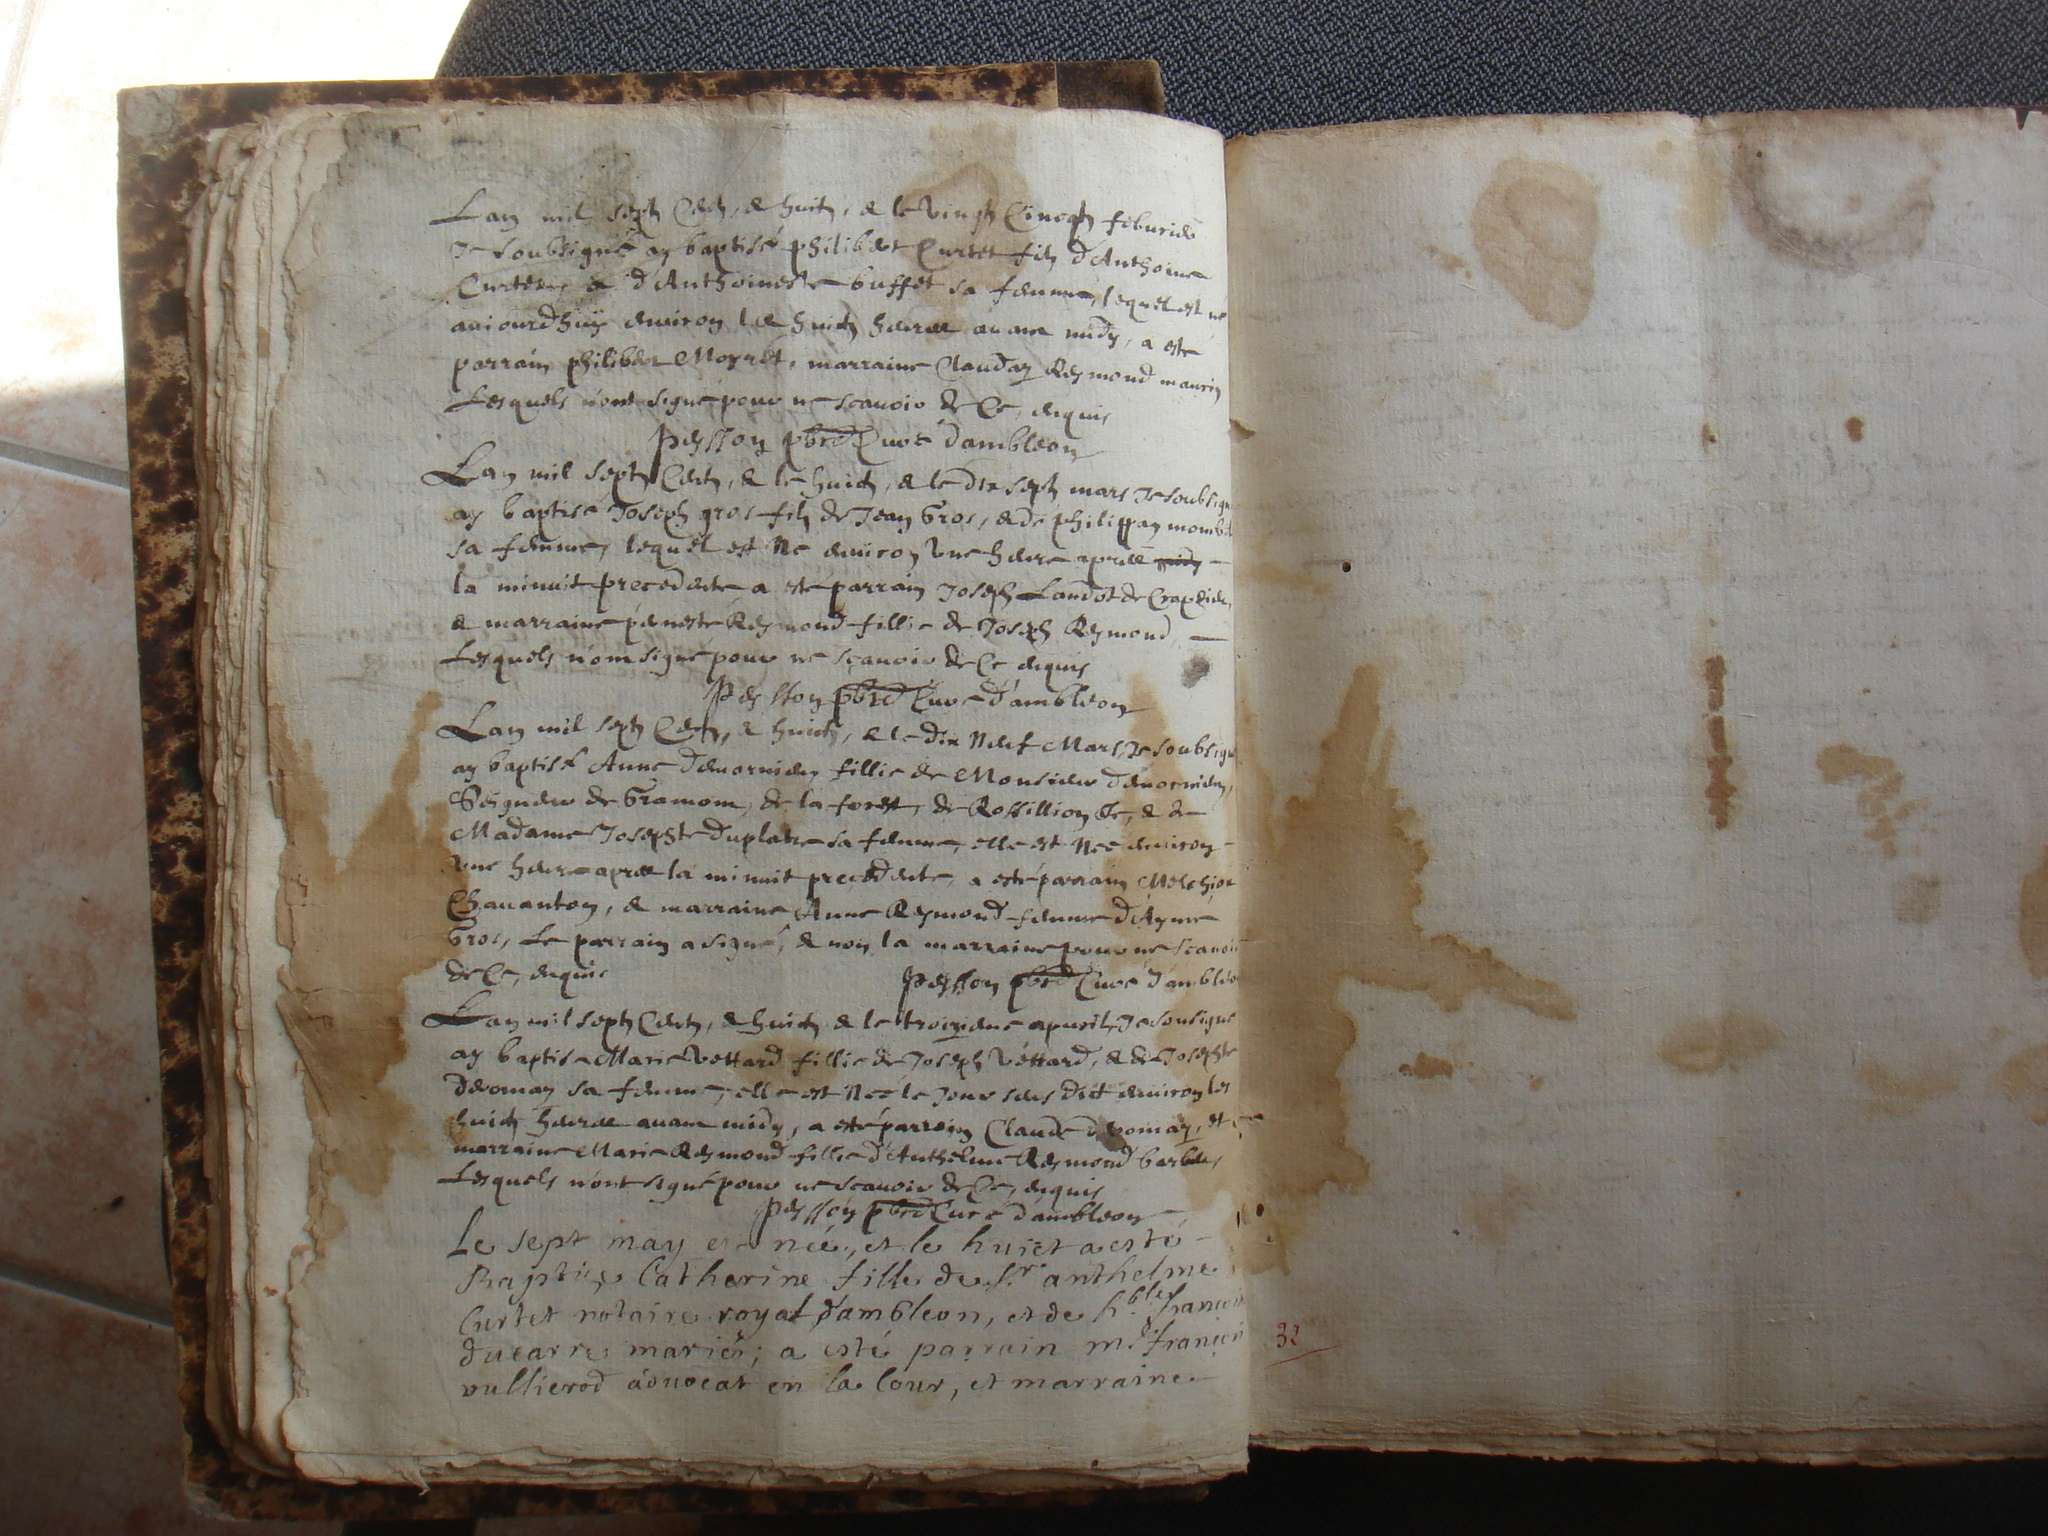 Lan mil sept Cent, & huit, & le vingt Cineqt feburier
Je soubsigné ay baptisé philibert Curtet fils d'Anthoine
Curtet, & d'Anthoineste buffet sa femme, lequel est né
auiourdhuÿ enuiron les huict heures auant midy, a esté
parrain philibert Moyret, marraine Clauday Reymond maurin
Lesquels n'ont signé pour ne scauoir de Ce, enquis
Peysson pbre Curé d'ambleon
Lan mil sept Cent, & le huict, & le dix sept mars Je soubsigné
ay baptisé Joseph gros fils de Jean Gros, & de philippay
sa femme, lequel est Né enuiron Vne heure apres
la minuit precedente a esté parrain Joseph Landot de
& marraine peneste Reymond fillie de Joseph Reymond,
Lesquels n'ont signé pour ne sçauoir de Ce enquis
Peysson pbre Curé d'ambleon
Lan mil sept Cent, & huict, & le dix Neuf Mars, Je soubsigné
ay baptisé Anne deuornien fillie de Monsieur deuornien,
Seigneur de Gramont, de la forest, de Rossillion &c, & de
Madame Josephte Duplatre sa femme, elle est Née enuiron
vne heure apres la minuit precedente, a esté parrain Melchior
Chauanton, & marraine Anne Reymond femme d'Ayme
Gros, Le parrain a signé, & non la marraine pour ne scauoir
de Ce, enquis Peysson pbre Curé d'ambleon
Lan mil sept Cent, & huict & le troizieme apuril, Je sousigné
ay baptisé Marie Vettard fillie de Joseph Vettard, & de Josephte
deuomay sa femme, elle est Née le Jour sus dict enuiron les
huict heures auant midy, a esté parrain Claude et
marraine Marie Reymond fillie d'Anthelme Reymond barbes
Lesquels n'ont signé pour ne scauoir de Ce, enquis
Peysson pbre Curé d'ambleon
Le sept may est née, et le huict a esté
Baptisée Catherine fille de Sr. anthelme
Curtet notaire royal d'ambleon, et de h.ble francoise
ducarre mariés; a esté parrain mr. françois
vullierod aduocat en la Cour, et marraine
32